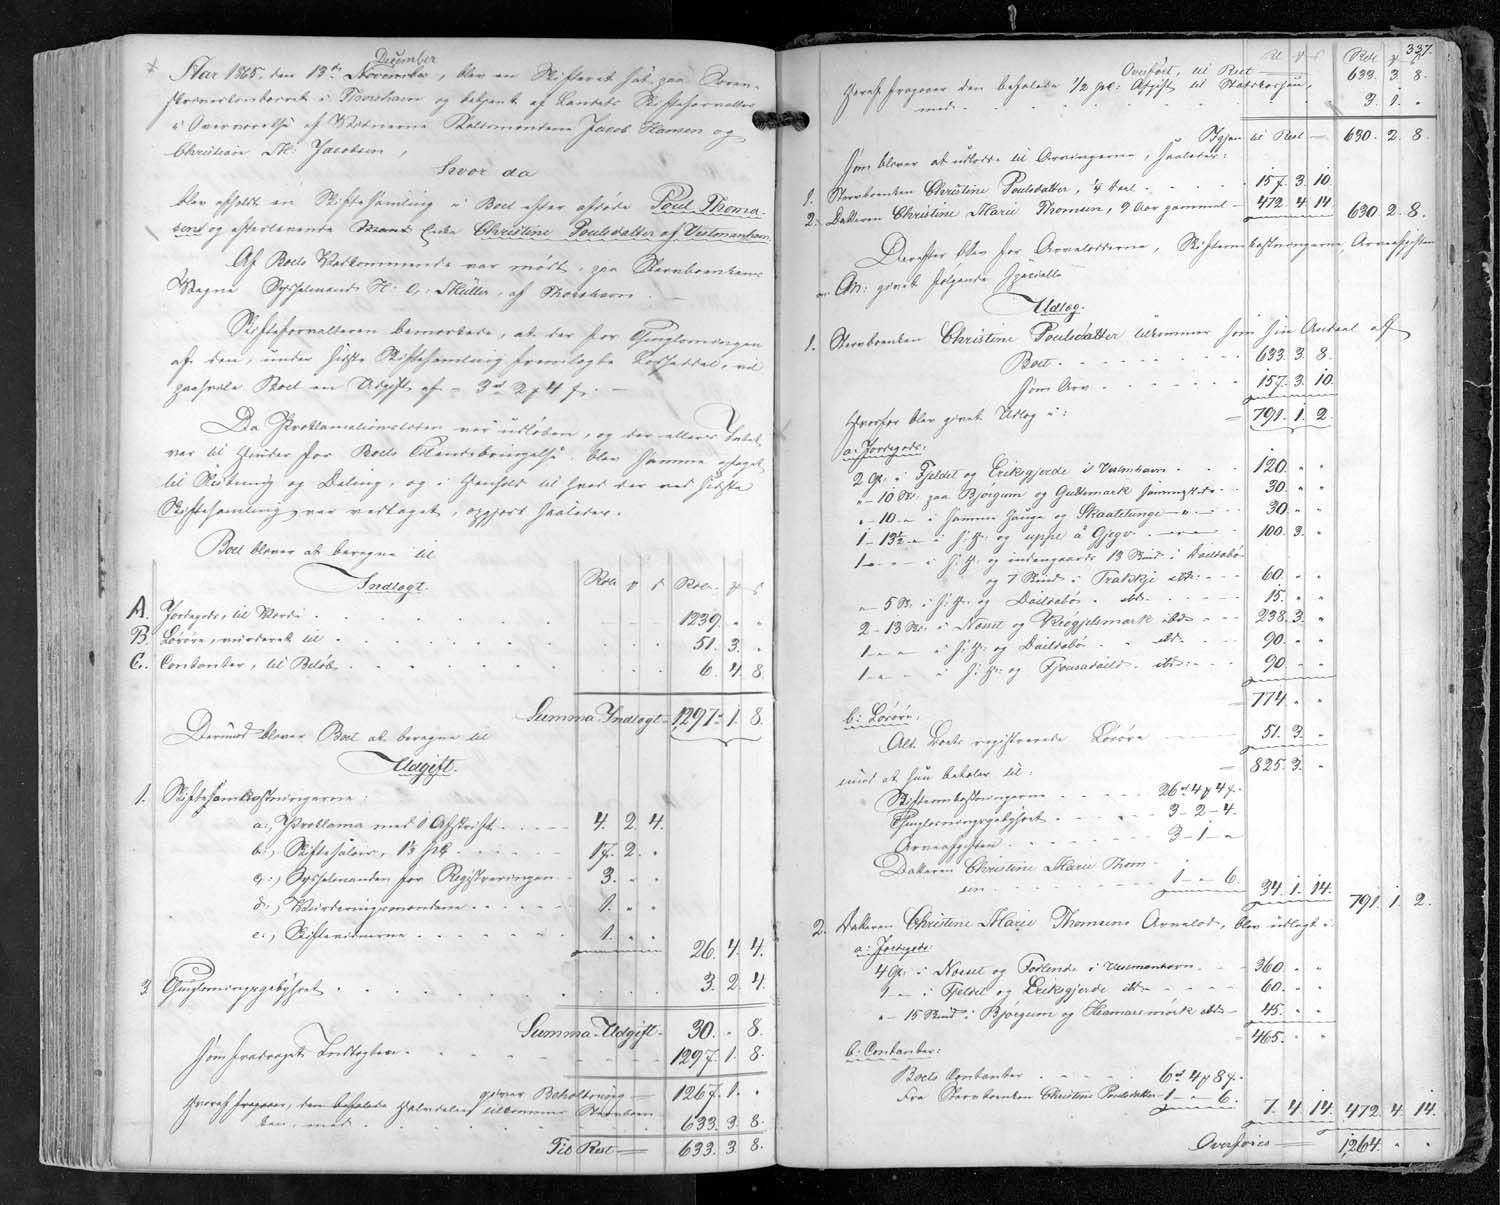 Aar 1865, den 13de December November, blev en Skifteret sat paa Soren-
skriverkontoiret i Thorshavn og betjent af Landets Skifteforvalter
i Overværelse af Vidnerne Politimændene Jacob Hansen og
Christian M: Jacobsen,
hvor da
blev afholdt en Skiftesamling i Boet efter afdøde Poul Thoma-
sen og efterlevende Enke Christine Poulsdatter af Vestmanhavn.
Af Boets Vedkommende var mødt, paa Sterboenkens
Vegne Sysselmand H: C: Müller, af Thorshavn. —
Skifteforvalteren bemærkede, at der for Thinglæsningen
af den, under sidste Skiftesamling fremlagte Lodseddel, vil
paahvile Boet en Udgift af = 3rd 2 # 4 s. —
Da Proklamationstiden var udløben, og der ellers Intet
var til Hinder for Boets Tilendebringelse, blev samme optaget
til Slutning og Deling, og i Henhold til hvad der ved sidste
Skiftesamling var vedtaget, opgjort saaledes.
Boet bliver at beregne til
Indtægt. Rdlr. # s Rdlr. # s
A. Jordegods, til Værdi 1239. " "
B. Løsøre, vurderet til 51. 3. "
C. Contanter, til Beløb 6. 4. 8.
Summa Indtægt 1,297. 1. 8.
Derimod bliver Boet at beregne til
Udgift.
1. Skifteomkostningerne:
a:, Proklama med 1 Afskrift 4. 2. 4.
b:, Skiftesalær, 1⅓ pC 17. 2. "
c:, Sysselmanden for Registreringen 3. " "
d:, Vurderingsmændene 1. " "
e:, Skiftevidnerne 1. " "
26. 4. 4.
3. Thinglæsningsgebyhret 3. 2. 4.
Summa Udgift 30. " 8.
som fradraget Indtægten 1297. 1. 8.
giver Beholdning 1267. 1. "
Hvoraf fragaaer, den befalede Halvdelen tilkommer Sterboen-
ken, med 633. 3. 8.
Til Rest 633. 3. 8.
337.
Rd # s Rdl # s
Overført, til Rest 633. 3. 8.
Heraf fragaaer den befalede ½ pC: Afgift til Statskassen,
med 3. 1. "
Igjen til Rest 630. 2. 8.
som bliver at udlodde til Arvingerne, saaledes:
1. Sterboenken Christine Poulsdatter, ¼ Deel 157. 3. 10.
2. Datteren Christine Marie Thomsen, 9 Aar gammel 472. 4. 14. 630. 2. 8.
Derefter blev for Arvelodderne, Skifteomkostningerne, Arveafgiften
m: M: givet følgende specielle
Udlæg.
1. Sterboenken Christine Poulsdatter tilkommer som sin Andeel af
Boet 633. 3. 8.
som Arv 157. 3. 10.
Hvorfor blev givet Udlæg i: 791. 1. 2.
a: Jordegods:
2 Gl: i Fjeldet og Eriksgjerde i Vestmhavn 120. " "
" — 10 Sk: paa Bjørgum og Guttemark sammesteds 30. " "
" — 10 — " i samme Hauge og Skaaletunge — " — 30. " "
1 — 13½ — " i s: H: og uppe å Gjegv — " — 100. 3. "
1 — " — " i s: H: og indengaards 13 Skind i Dailsabø
og 7 Skind i Trakkje ibd: 60. " "
" — 5 Sk: i s: H: og Dailsabø ibd: 15. " "
2 — 13 Sk: i Nosset og Krogjelsmark ibd: 238. 3. "
1 — " — " i s: H: og Dailsabø ibd: 90. " "
1 — " — " i s: H: og Fjousadaild ibd: 90. " "
774. " "
b: Løsøre,
Alt Boets registrerede Løsøre 51. 3. "
825. 3. "
imod at hun betaler til:
Skifteomkostningerne 26rd 4 # 4 s.
Thinglæsningsgebyhret 3 — 2 — 4.
Arveafgiften 3 — 1 — "
Datteren Christine Marie Thom-
sen 1 — " — 6. 34. 1. 14. 791. 1. 2.
2. Datteren Christine Marie Thomsens Arvelod, blev udlagt i:
a: Jordegods:
4 Gl: i Nosset og Forlende i Vestmanhavn 360. " "
1 — " i Fjeldet og Eriksgjerde ibd: 60. " "
" — 15 Skind i Bjørgum og Heamaresmørk ibd: 45. " "
465. " "
b: Contanter:
Boets Contanter 6rd 4 # 8 s.
Fra Sterboenken Christine Poulsdatter 1 — " — 6. 7. 4. 14. 472. 4. 14.
Overføres 1,264. " "